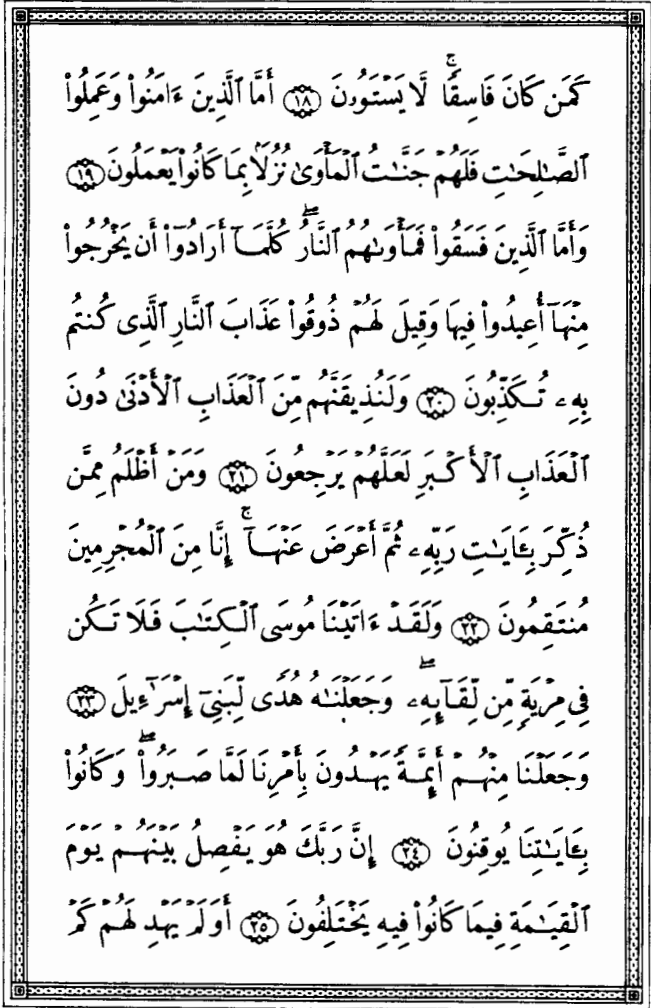 كَمَن كَانَ فَاسِقًا ۚ لَّا يَسْتَوُۥنَ ۝١٨ أَمَّا ٱلَّذِينَ ءَامَنُوا۟ وَعَمِلُوا۟
ٱلصَّـٰلِحَـٰتِ فَلَهُمْ جَنَّـٰتُ ٱلْمَأْوَىٰ نُزُلًۢا بِمَا كَانُوا۟ يَعْمَلُونَ ۝١٩
وَأَمَّا ٱلَّذِينَ فَسَقُوا۟ فَمَأْوَىٰهُمُ ٱلنَّارُ ۖ كُلَّمَآ أَرَادُوٓا۟ أَن يَخْرُجُوا۟
مِنْهَآ أُعِيدُوا۟ فِيهَا وَقِيلَ لَهُمْ ذُوقُوا۟ عَذَابَ ٱلنَّارِ ٱلَّذِى كُنتُم
بِهِۦ تُكَذِّبُونَ ۝٢٠ وَلَنُذِيقَنَّهُم مِّنَ ٱلْعَذَابِ ٱلْأَدْنَىٰ دُونَ
ٱلْعَذَابِ ٱلْأَكْبَرِ لَعَلَّهُمْ يَرْجِعُونَ ۝٢١ وَمَنْ أَظْلَمُ مِمَّن
ذُكِّرَ بِـَٔايَـٰتِ رَبِّهِۦ ثُمَّ أَعْرَضَ عَنْهَآ ۚ إِنَّا مِنَ ٱلْمُجْرِمِينَ
مُنتَقِمُونَ ۝٢٢ وَلَقَدْ ءَاتَيْنَا مُوسَى ٱلْكِتَـٰبَ فَلَا تَكُن
فِى مِرْيَةٍ مِّن لِّقَآئِهِۦ ۖ وَجَعَلْنَـٰهُ هُدًى لِّبَنِىٓ إِسْرَٰٓءِيلَ ۝٢٣
وَجَعَلْنَا مِنْهُمْ أَئِمَّةً يَهْدُونَ بِأَمْرِنَا لَمَّا صَبَرُوا۟ ۖ وَكَانُوا۟
بِـَٔايَـٰتِنَا يُوقِنُونَ ۝٢٤ إِنَّ رَبَّكَ هُوَ يَفْصِلُ بَيْنَهُمْ يَوْمَ
ٱلْقِيَـٰمَةِ فِيمَا كَانُوا۟ فِيهِ يَخْتَلِفُونَ ۝٢٥ أَوَلَمْ يَهْدِ لَهُمْ كَمْ